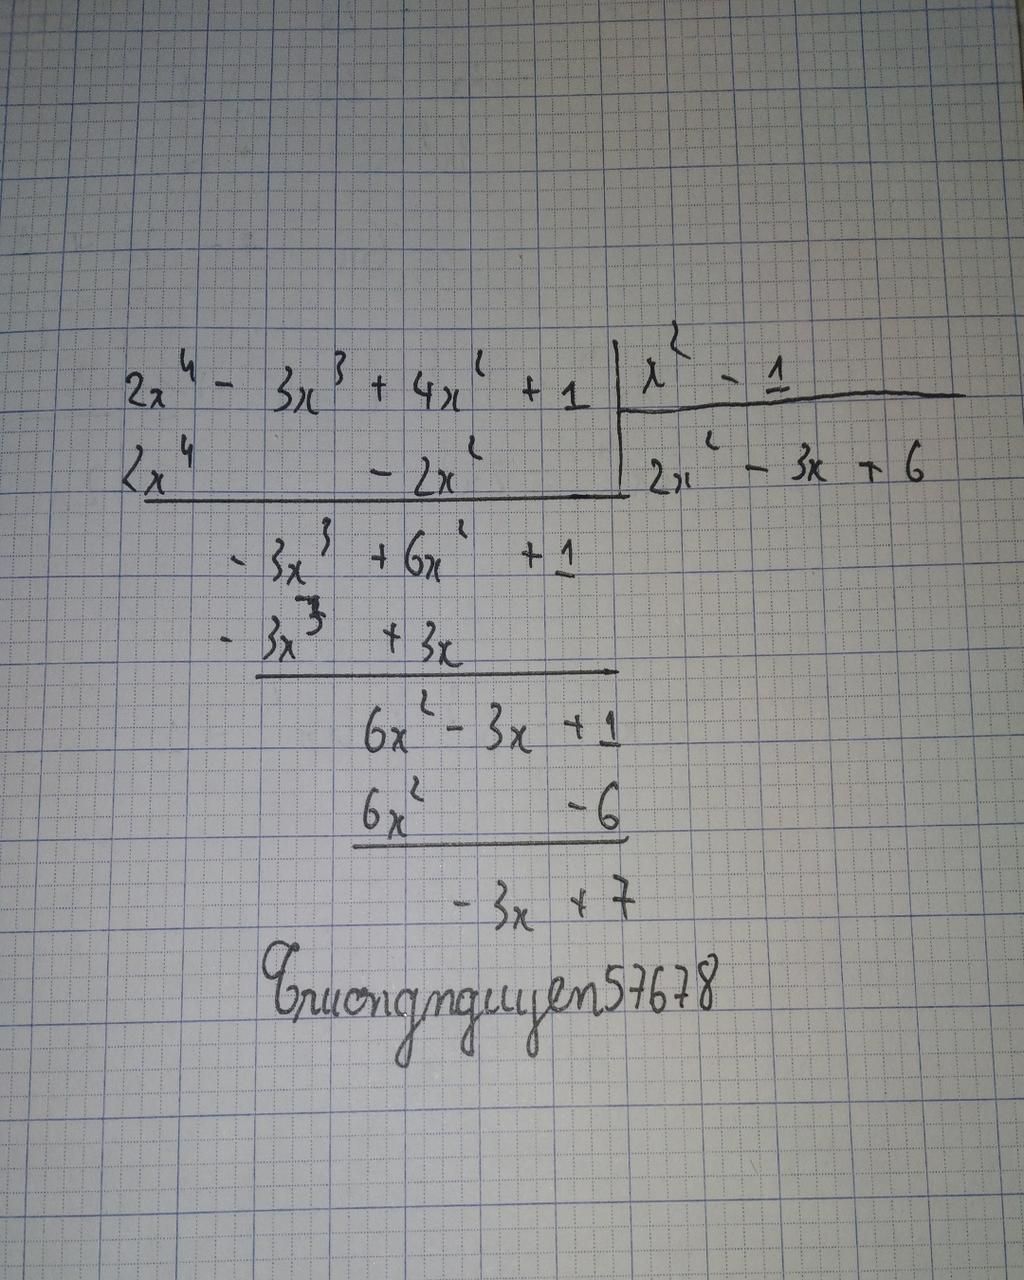 2x⁴ - 3x³ + 4x² + 1 | x² - 1
2x⁴ - 2x² | 2x² - 3x + 6
- 3x³ + 6x² + 1
- 3x³ + 3x
6x² - 3x + 1
6x² - 6
- 3x + 7
Truongnguyen57678